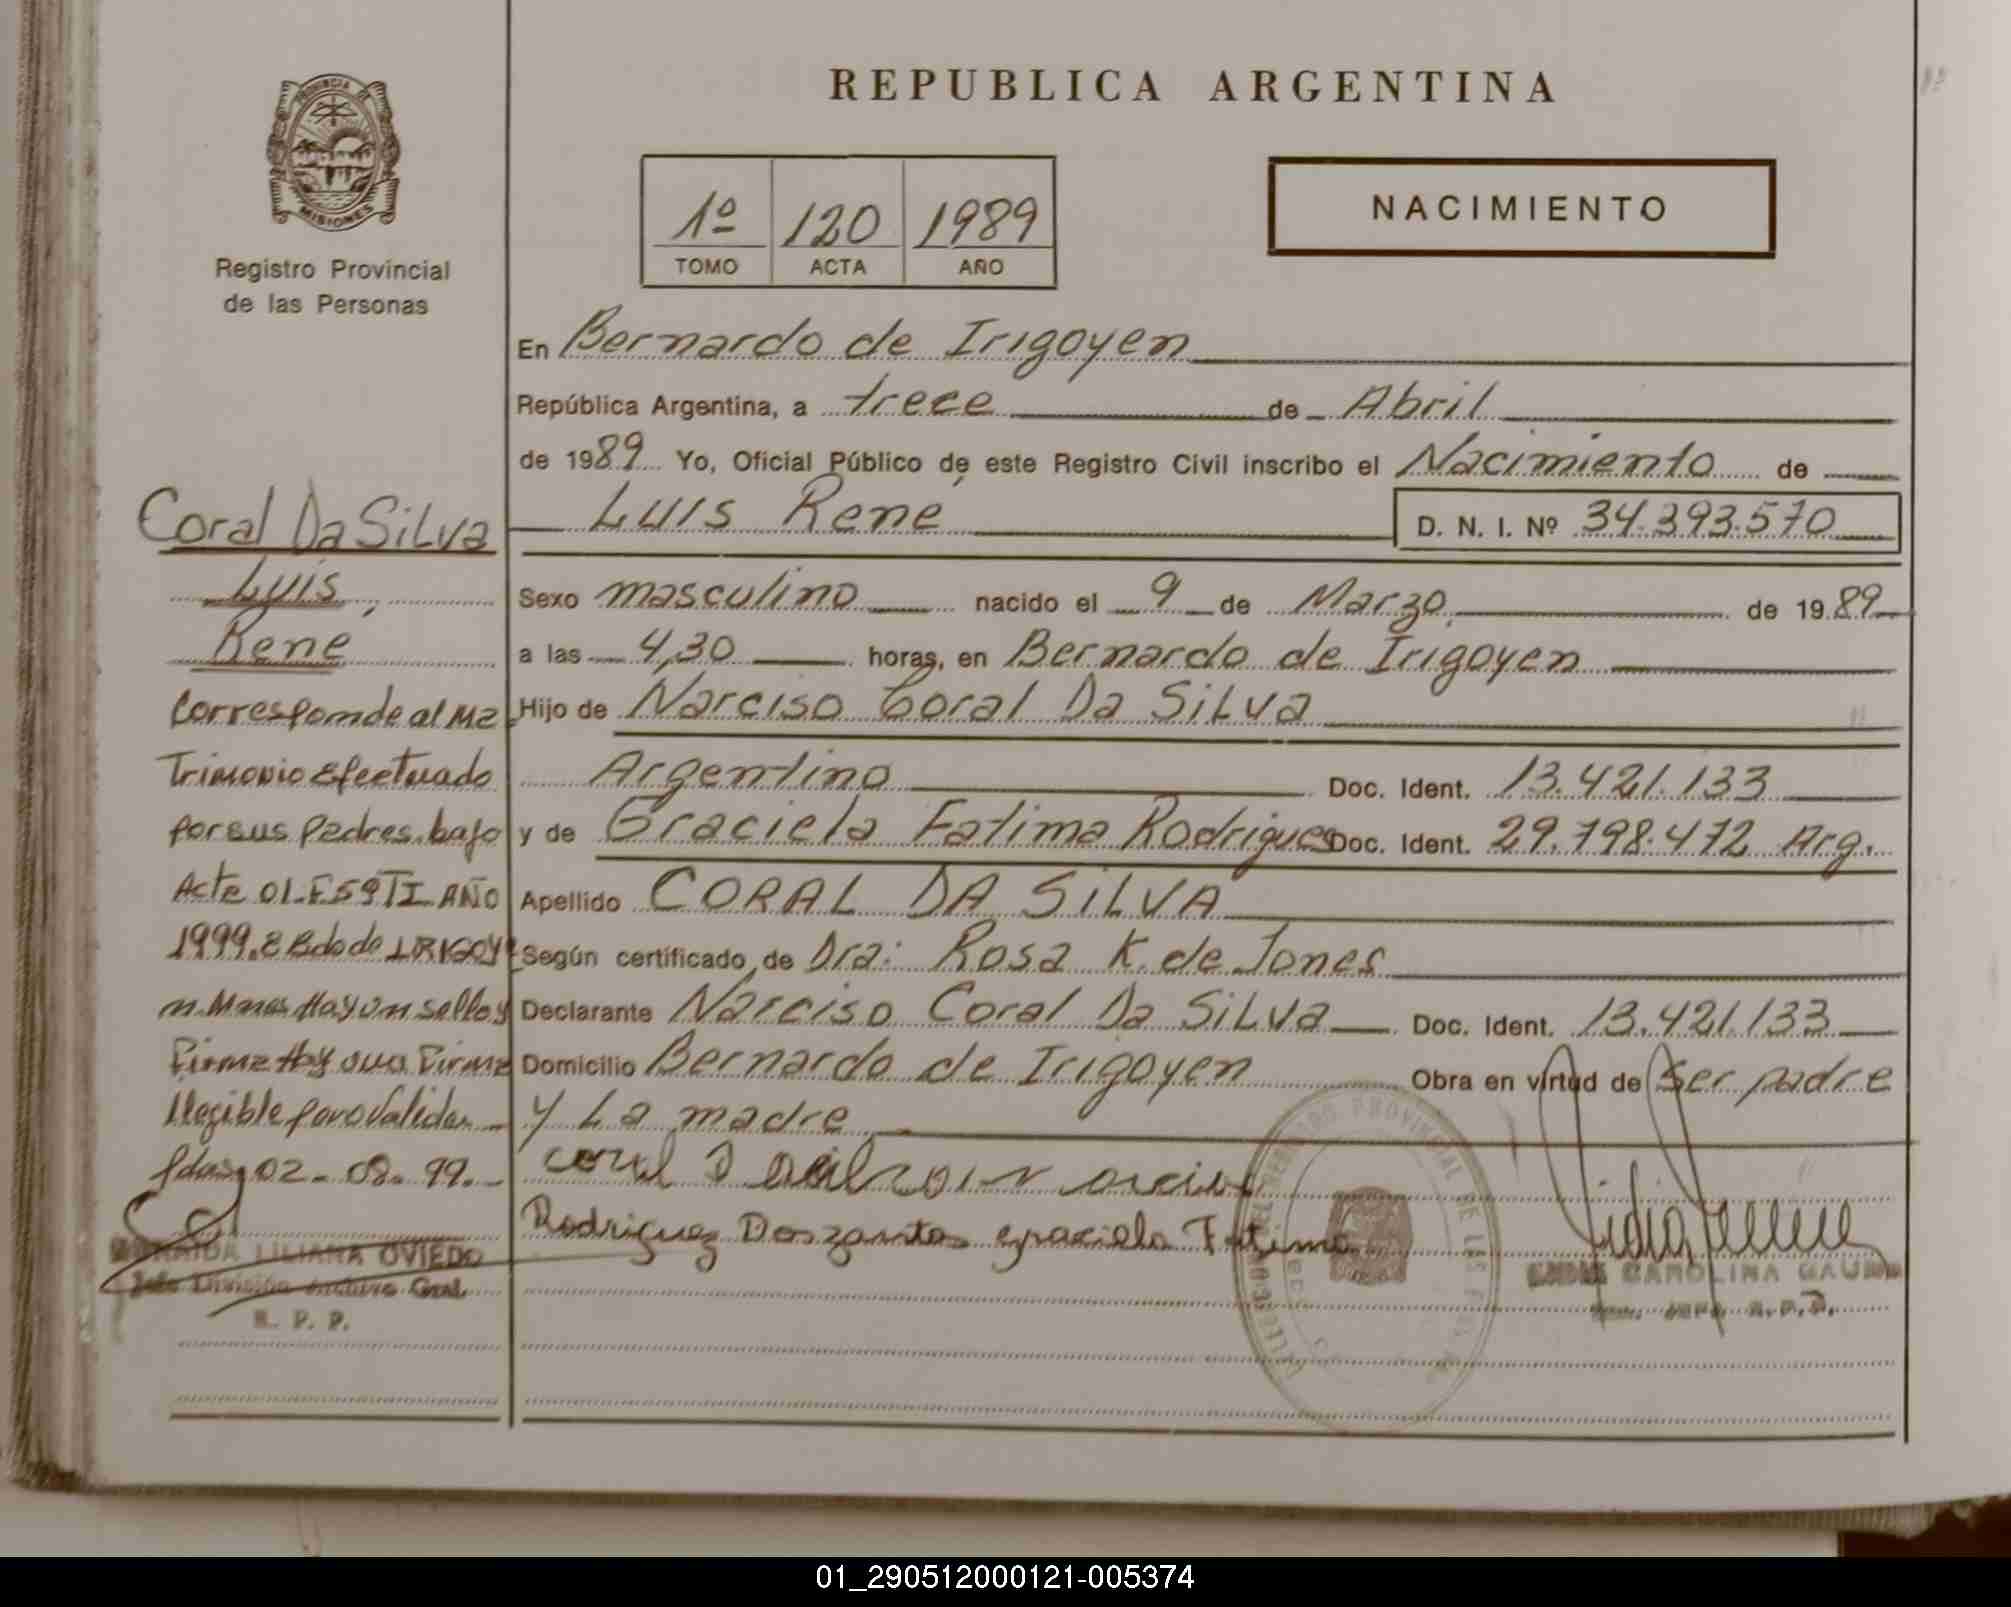 REPUBLICA ARGENTINA
PROVINCIA DE
MISIONES
Registro Provincial
de las Personas
1º 120 1989
TOMO ACTA AÑO
NACIMIENTO
En Bernardo de Irigoyen
República Argentina, a trece de Abril
de 1989 Yo, Oficial Público de este Registro Civil inscribo el Nacimiento de
Luis Rene D. N. I. Nº 34.393.570
Sexo masculino nacido el 9 de Marzo de 1989
a las 4,30 horas, en Bernardo de Irigoyen
Hijo de Narciso Coral Da Silva
Argentino Doc. Ident. 13.421.133
y de Graciela Fatima Rodrigues Doc. Ident. 29.798.472 Arg.
Apellido CORAL DA SILVA
Según certificado de Dra: Rosa K. de Jones
Declarante Narciso Coral Da Silva Doc. Ident. 13.421.133
Domicilio Bernardo de Irigoyen Obra en virtud de Ser padre
y La madre
Rodriguez Doszantos graciela Fatima
CAROLINA
Coral Da Silva
Luis,
Rene
Corresponde al Ma
Trimonio Efectuado
por sus Padres. bajo
Acta 01-F59TI AÑO
1999. E Bdo de IRIGOYE
n. Mnes Hay un sello y
Firma Hay una Firma
Ilegible para Validar
Pdas, 02-08-99.-
LILIANA OVIEDO
Jefe División Archivo Gral.
R. P. P.
01_290512000121-005374